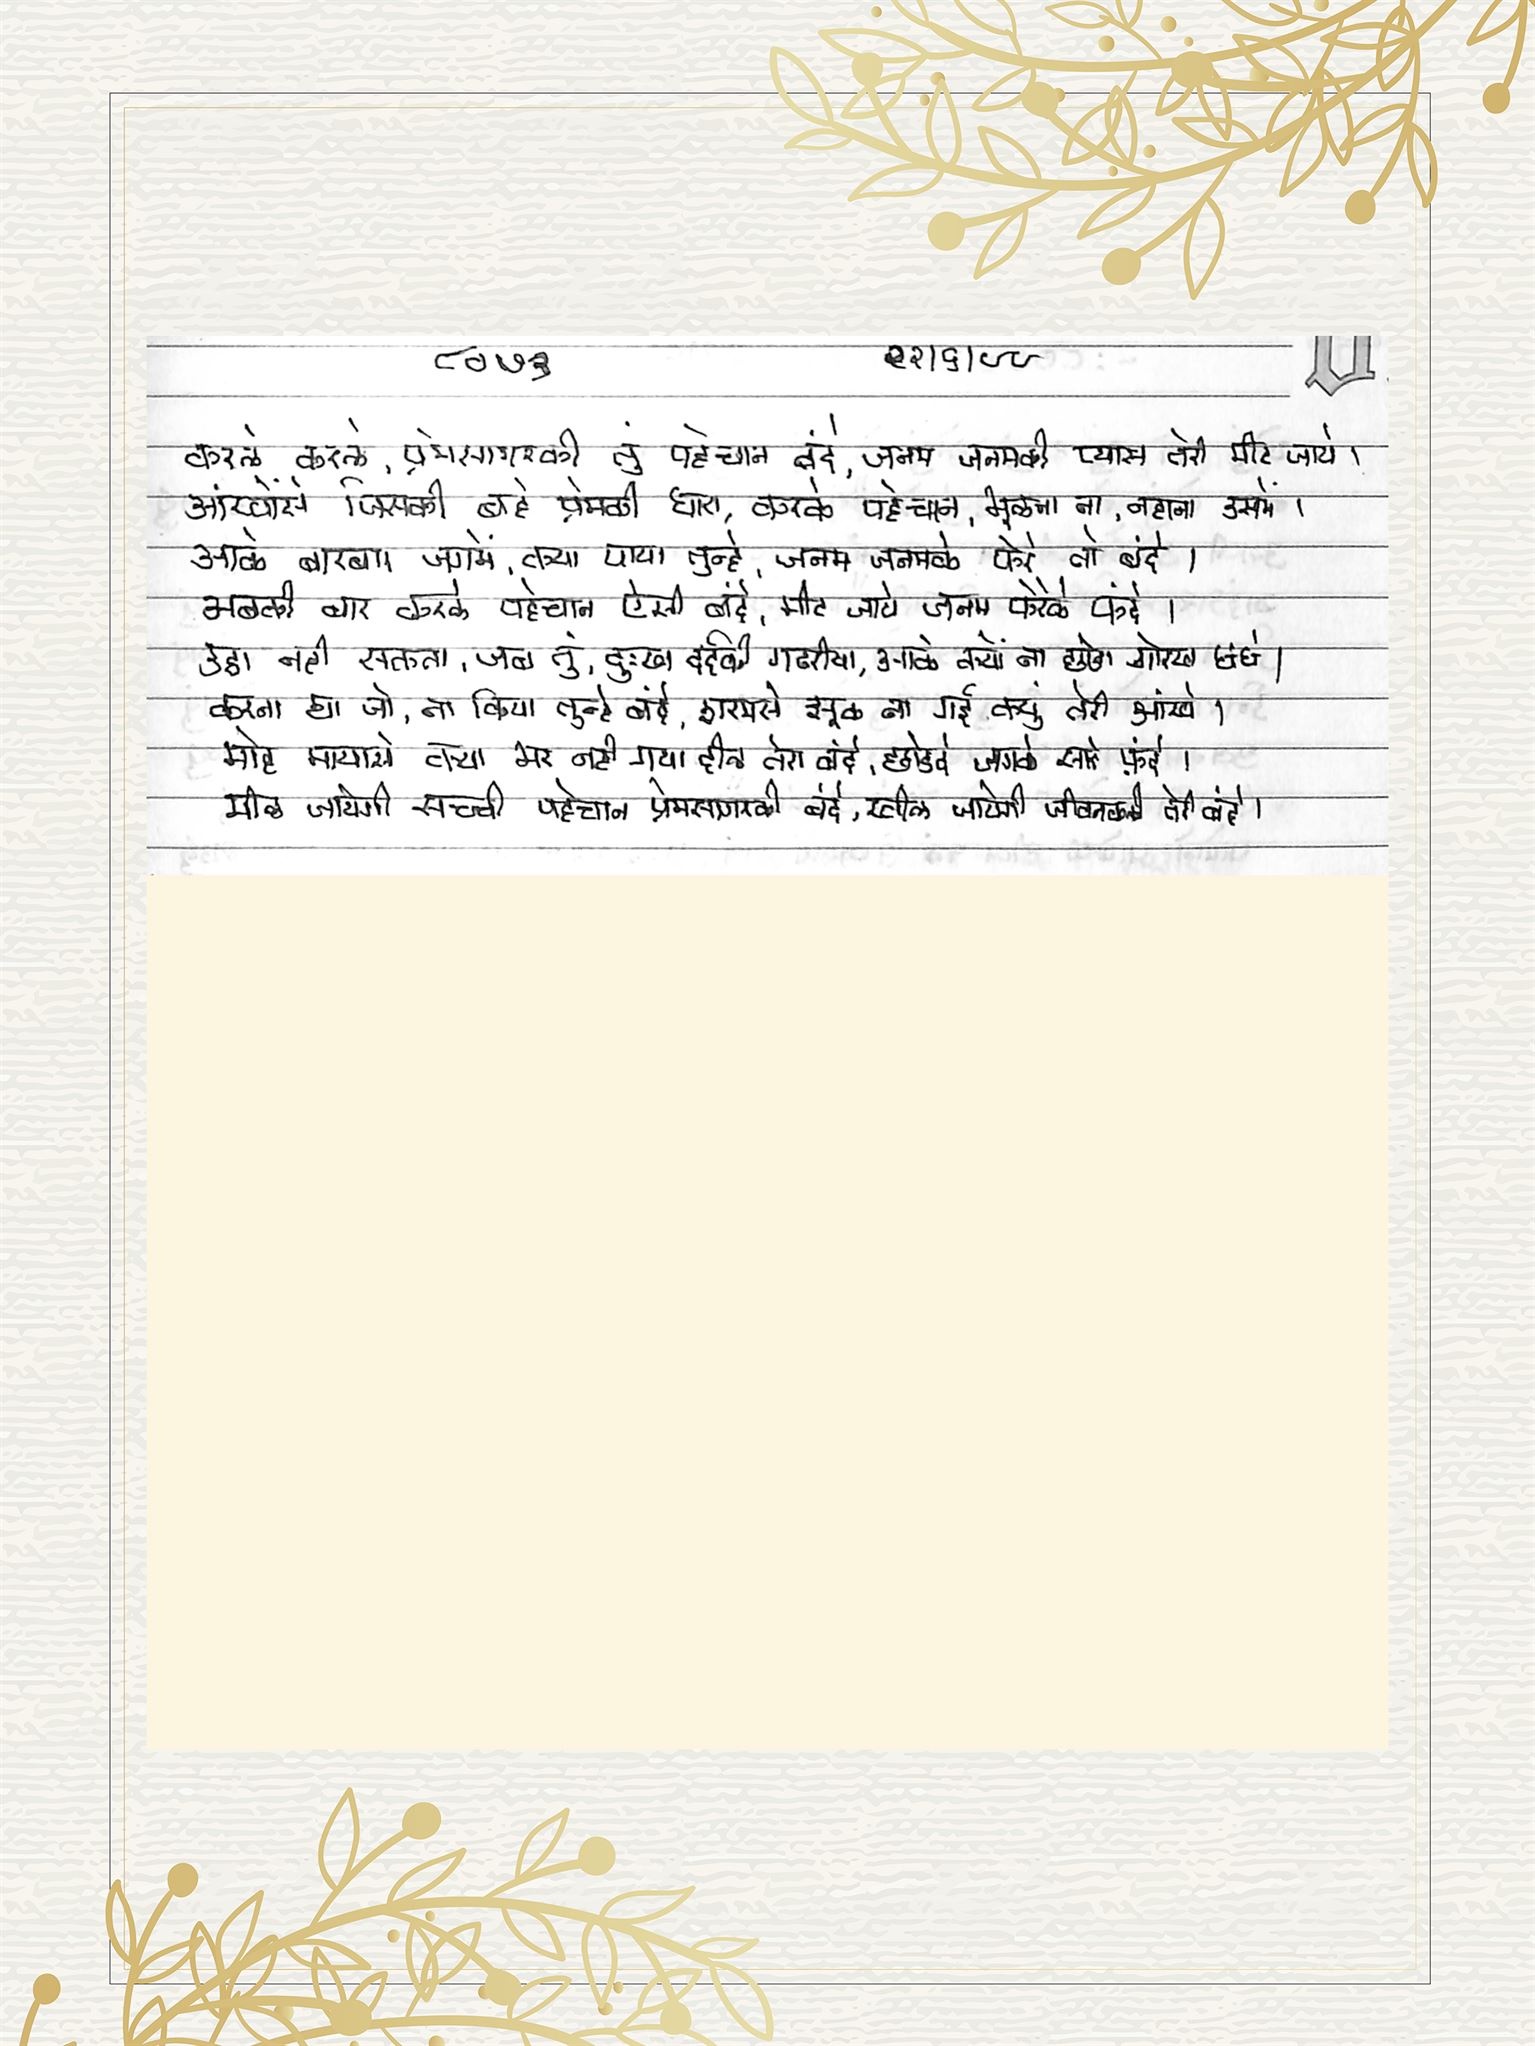 ८०७३ २२/६/८८
करले करले, प्रेमसागरकी तुं पहेचान बंदे, जनम जनमकी प्यास तेरी मीट जाये।
आंखोंसे जिसकी बहे प्रेमकी धारा, करके पहेचान, भूलना ना, नहाना उसमें।
आके बारबार जगमें, क्या पाया तुन्हे, जनम जनमके फेरे तो बंदे।
अबकी बार करके पहेचान ऐसी बंदे, मीट जाये जनम फेरेके फंदे।
उठा नही सकता, जब तुं, दुःख दर्दकी गठरीया, आके क्यों ना छोडा गोरख धंधे।
करना था जो, ना किया तुन्हे बंदे, शरमसे झूक ना गई क्युं तेरी आंखे।
मोह मायासे क्या भर नही गया दील तेरा बंदे, छोडदे जगके सारे फ़ंदे।
मील जायेगी सच्ची पहेचान प्रेमसागरकी बंदे, खील जायेगी जीवनकली तेरी बंदे।